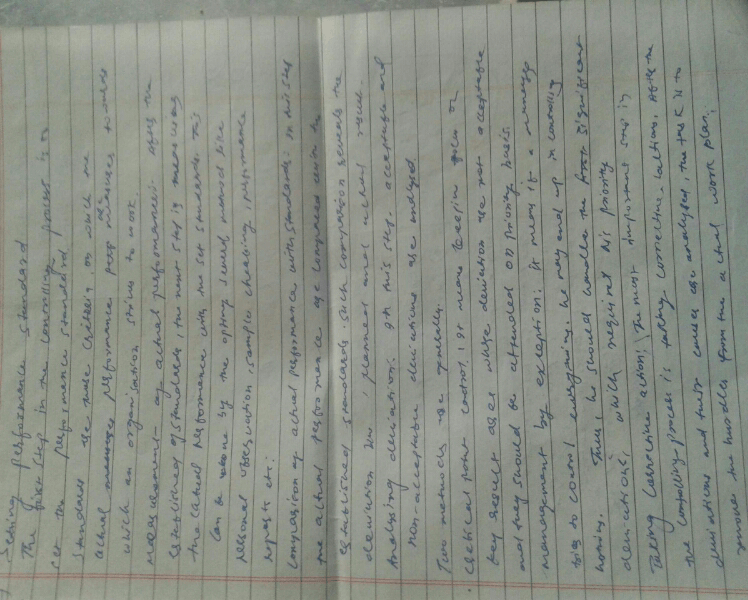 Setting performance standard
The first step in the controlling process is to
set the performance standard.
Standards are those criteria on which the
actual measures performance measures
which an organisation strives to work.
measurement of actual performance:- After the
established of standards, the next step is measuring
the actual performance with the set standards. This
can be done by the opting several method like
personal observation, sample checking, performance
reports etc.
Comparison of actual performance with standards:- In this step
the actual performance are compared with the
established standards. Such comparison reveals the
deviation b/w planned and actual result.
Analysing deviation: At this step, acceptable and
non-acceptable deviations are analysed
Two methods use generally.
Critical point control: It means keeping focus on
key result areas where deviation are not acceptable
and they should be attended on priority basis.
management by exception: it means if a manager
tries to control everything, he may end up in controlling
nothing. Thus, he should handle the significant
deviations, which required his priority
Taking corrective action: The most important step in
the controlling process is taking corrective actions. After the
deviations and their causes are analysed, the task is to
remove the hurdles from the actual work plan.